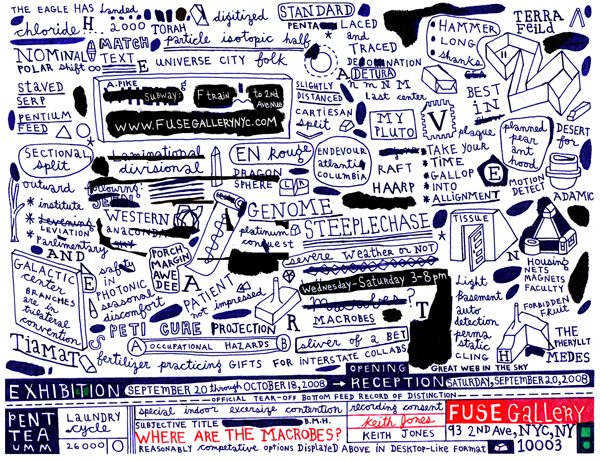 THE EAGLE HAS Landed
chloride H 2000 TORAH
digitized
STANDARD
PENTA LACED
and
TRACED
HAMMER
LONG
shanks
TERRA
Feild
NOMINAL
MATCH
TEXT
particle isotopic half
POLAR shift
E UNIVERSE CITY folk
A DETURA
n m N M
Last center
BEST
in
STAVED
SERP
PENTIUM
FEED
A. PIKE
SUBWAY: F train to 2nd AVENUE
WWW.FUSEGALLERYNYC.COM
SLIGHTLY
DISTANCED
CARTIESAN
split
MY
PLUTO
V
plaque
planned
pear
ant
hood
DESERT
for
SECTIONAL
split
Laminational
divisional
EN Rouge
DRAGON
SPHERE
ENDEVOUR
atlantis
COLUMBIA
RAFT
HAARP
TAKE YOUR
* TIME
* GALLOP
* INTO
ALLIGNMENT
E
MOTION
DETECT
ADAMIC
outward
* institute
* Levening
LEVIATION
* Parlimentary
AND
following:
WESTERN
anaconda
GENOME
platinum
conquest
STEEPLECHASE
severe weather or NOT
TISSUE
N
Housing
NETS
MAGNETS
FACULTY
GALACTIC
center
BRANCHES
are in
trilateral
convention
E
safety
in
PHOTONIC
seasonal
discomfort
PORCH
MARGIN
AWE
DEE
A
PATIENT
not impressed
Wednesday-Saturday 3-8pm
Macrobes ?
MACROBES
T
Light
basement
auto
detection
perma
static
CLING
H
FORBIDDEN
FRUIT
THE
THERYLLT
MEDES
TiaMaT
S PETI CURE PROJECTION
R
A OCCUPATIONAL HAZARDS B
sliver of a BET
fertilizer practicing GIFTS FOR INTERSTATE COLLABS
GREAT WEB IN THE SKY
EXHIBITION SEPTEMBER 20 through OCTOBER 18, 2008
OPENING
RECEPTION SATURDAY, SEPTEMBER 20, 2008
OFFICIAL TEAR-OFF BOTTOM FEED RECORD OF DISTINCTION
PENT
TEA
UMM
LAUNDRY
cycle
26000
special indoor excersize contention
SUBJECTIVE TITLE B.M.H.
WHERE ARE THE MACROBES?
REASONABLY COMPETATIVE OPTIONS DISPLAYED ABOVE IN DESKTOP-LIKE FORMAT
recording consent
Keith Jones
KEITH JONES
FUSE GALLERY
93 2ND AVE, NYC, NY
10003